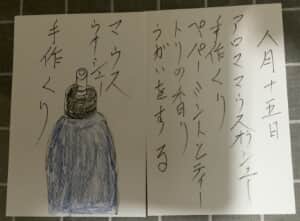 八月十五日
アロママウス
手作くり
ペパーミントとティー
トリの香り
うがいをする
マウス
ウオシュー
手作くり